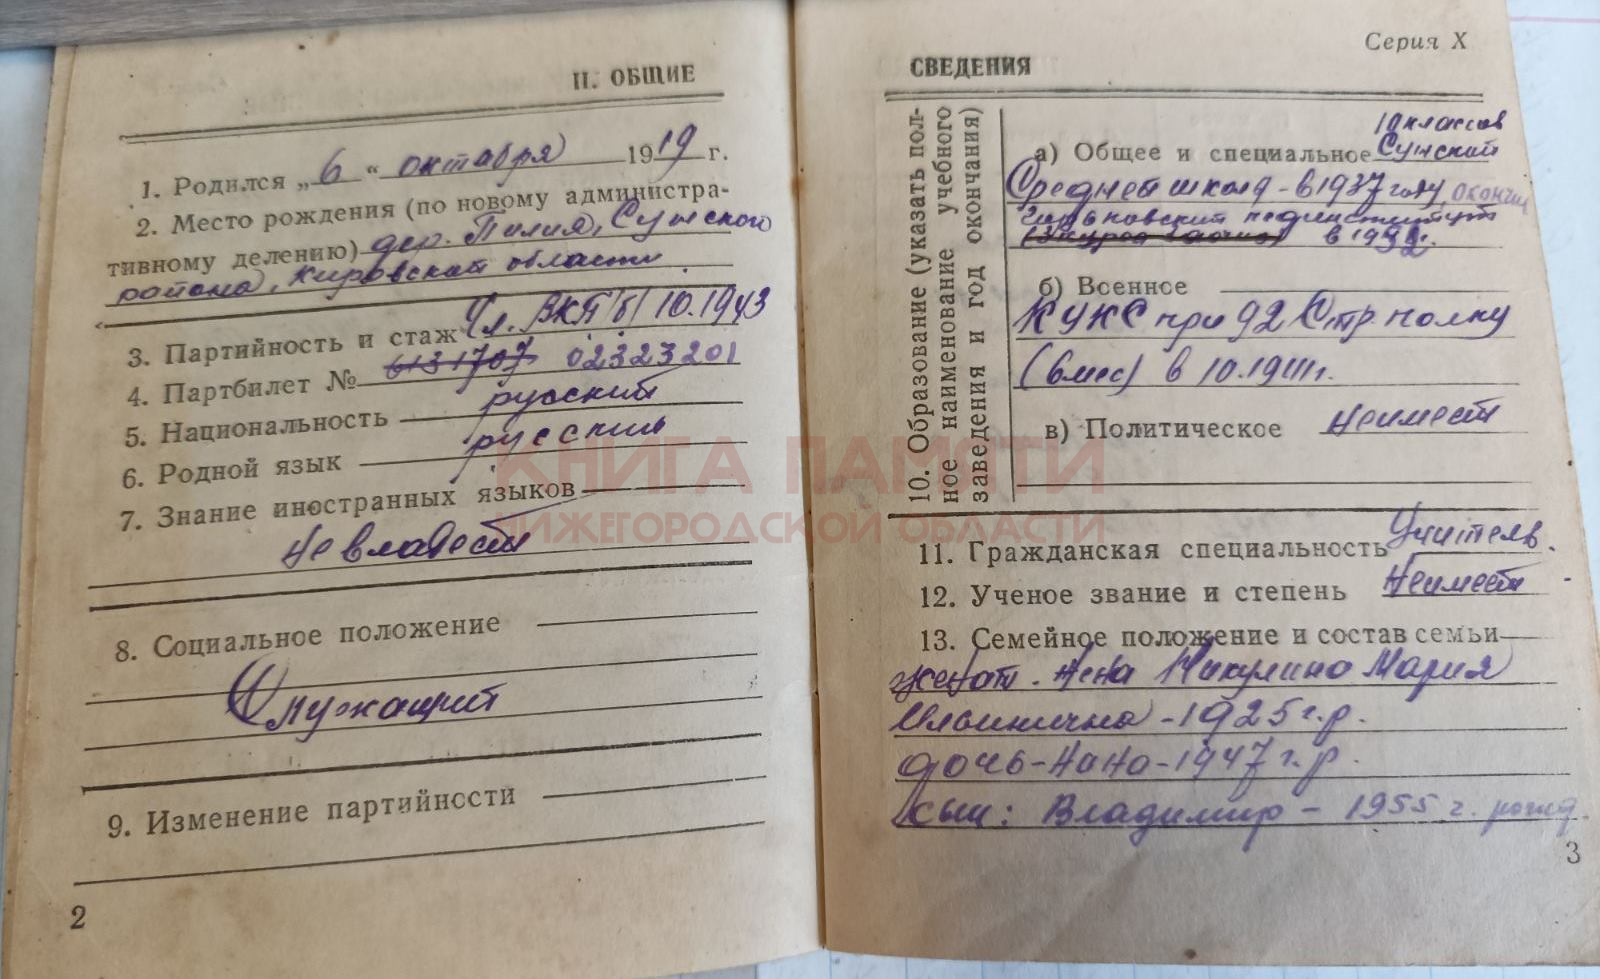 II. ОБЩИЕ
1. Родился „6“ октября 1919 г.
2. Место рождения (по новому администра-
тивному делению) дер. Пилия, Сунского
района, Кировской области
3. Партийность и стаж Чл. ВКП/б/ 10.1943
4. Партбилет № 6131707 02323201
5. Национальность русский
6. Родной язык русский
7. Знание иностранных языков
не владеет
8. Социальное положение
Служащий
9. Изменение партийности
2
Серия X
СВЕДЕНИЯ
10. Образование (указать пол-
ное наименование учебного
заведения и год окончания)
10 классов
а) Общее и специальное Сунский
Средней школа - в 1937 году, окончил
Горьковский пединститут
в 1952г.
б) Военное
КУКС при 92 Стр. полку
(6 мес) в 10.1941г.
в) Политическое не имеет
11. Гражданская специальность Учитель.
12. Ученое звание и степень Не имеет
13. Семейное положение и состав семьи
женат. Жена Никулина Мария
Ильинична - 1925 г.р.
дочь - 1947 г.р.
сын: Владимир - 1955 г. рожд.
3
КНИГА ПАМЯТИ
НИЖЕГОРОДСКОЙ ОБЛАСТИ